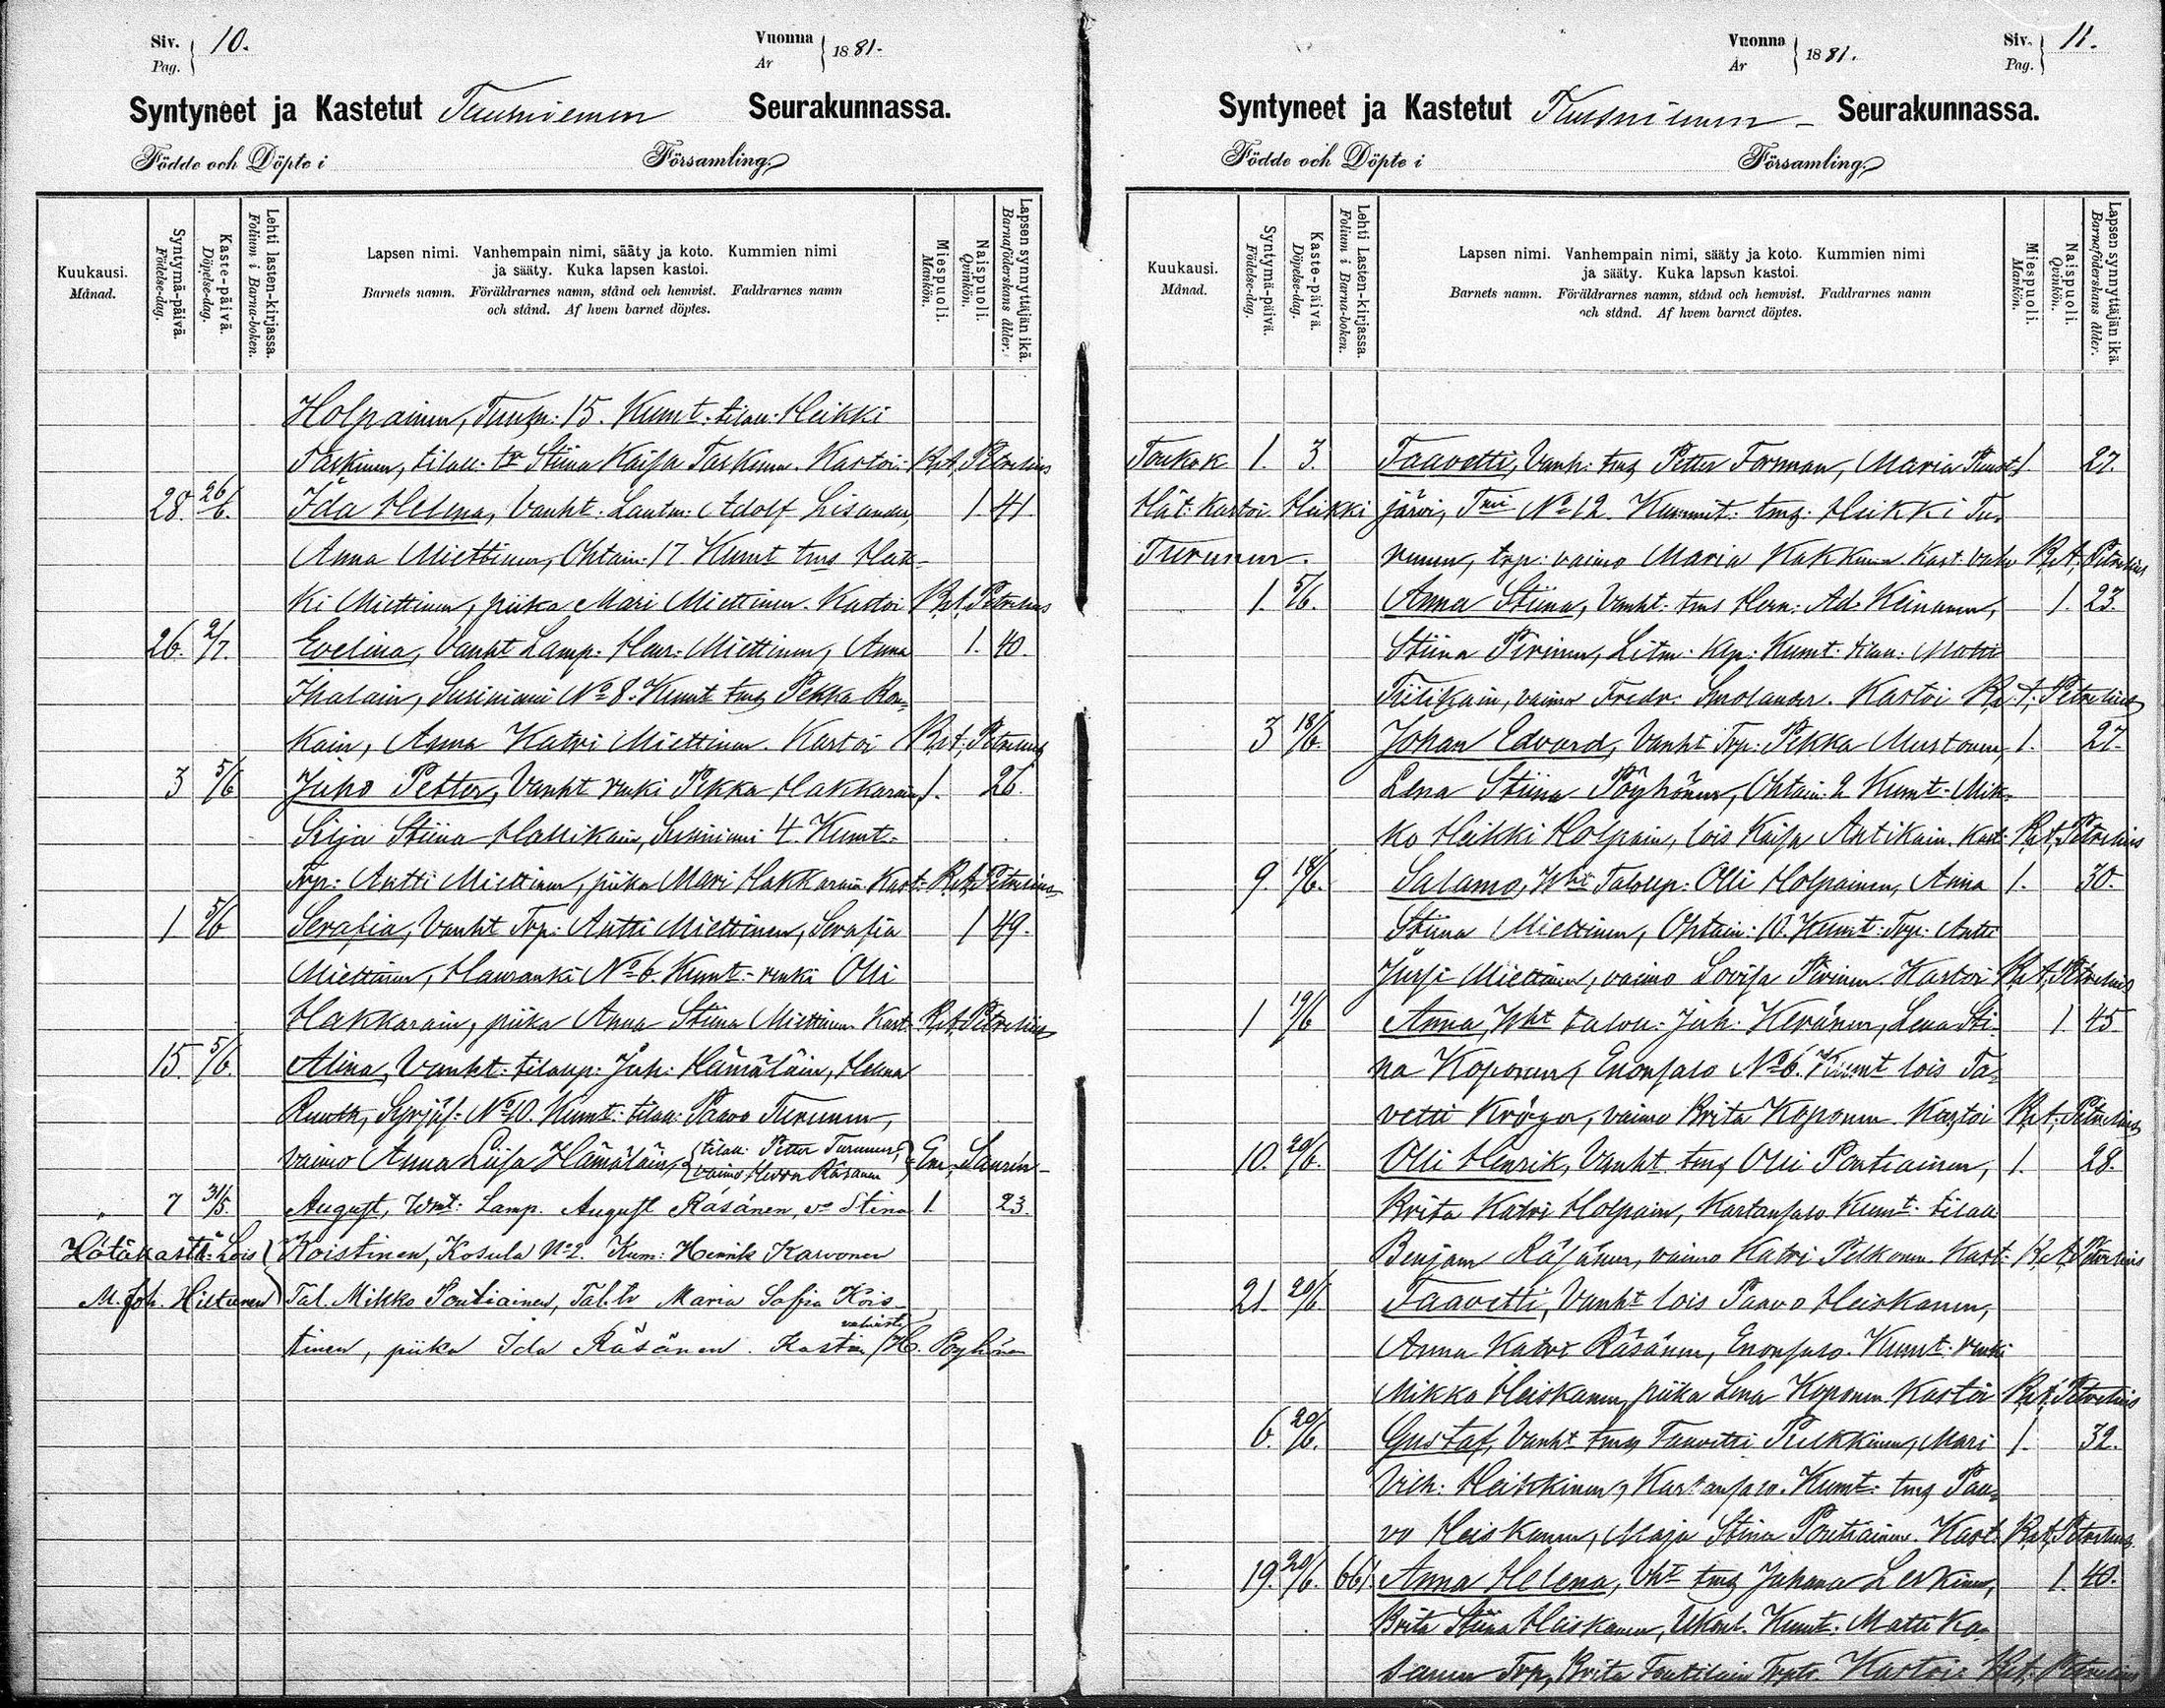 Siv. Pag. 10.
Vuonna År 1881.
Syntyneet ja Kastetut Tuusniemen Seurakunnassa.
Födde och Döpte i Församling.
Kuukausi. Månad.
Syntymä-päivä. Födelse-dag.
Kaste-päivä. Döpelse-dag.
Lehti lasten-kirjassa. Folium i Barna-boken.
Lapsen nimi. Vanhempain nimi, sääty ja koto. Kummien nimi
ja sääty. Kuka lapsen kastoi.
Barnets namn. Föräldrarnes namn, stånd och hemvist. Faddrarnes namn
och stånd. Af hvem barnet döptes.
Miespuoli. Mankön.
Naispuoli. Qvinkön.
Lapsen synnyttäjän ikä. Barnaföderskans ålder.
Holpainen, Tuusn: 15. Kumt: tilall: Heikki
Taskinen, tilall: tr Stiina Kaisa Taskinen. Kastoi: R. A. Petrelius
28. 26/6. Ida Helena, Vanht: Lautm: Adolf Lisander, 1 41.
Anna Miettinen, Ohtain: 17 Kumt tms Heik-
ki Miettinen, piika Mari Miettinen. Kastoi R. A. Petrelius
26. 2/7. Evelina, Vanht Lamp: Miettinen, Anna 1. 40.
Ihalain, Susiniemi No 8. Kumt tms Pekka Ron-
kain, Anna Katri Miettinen. Kastoi R. A. Petrelius
3 5/6 Juho Petter, Vanht renki Pekka Hakkarain, 1. 26.
Silja Stiina Hallikain, Susiniemi 4. Kumt:
Trp: Antti Miettinen, piika Mari Hakkarain. Kast: R. A. Petrelius
1 5/6 Serafia, Vanht Trp: Antti Miettinen, Serafia 1 49.
Miettinen, Hauranki No 6. Kumt: renki Olli
Hakkarain, piika Anna Stiina Miettinen. Kast: R. A. Petrelius
15. 5/6. Alina, Vanht: tilallp: Juh: Hämäläin, Helena
Ruuth, Syrjäs: No 10. Kumt: tilall: Paavo Turunen,
vaimo Anna Liisa Hämäläin, {tilall: Petter Turunen, vaimo Räsänen}
" 7 31/5. August, Wmt: Lamp. August Räsänen, Stina 1. 23.
Hätäkasti: Lois Koistinen, Kosula No 2. Kum: Henrik Karvonen
M. Joh. Hiltunen Tal. Mikko Pontiainen, Tal. tr Maria Sofia Kois-
tinen, piika Ida Räsänen. Kastin vahvisti H. Pöyhönen
Vuonna År 1881.
Siv. Pag. 11.
Syntyneet ja Kastetut Tuusniemen Seurakunnassa.
Födde och Döpte i Församling.
Kuukausi. Månad.
Syntymä-päivä. Födelse-dag.
Kaste-päivä. Döpelse-dag.
Lehti Lasten-kirjassa. Folium i Barna-boken.
Lapsen nimi. Vanhempain nimi, sääty ja koto. Kummien nimi
ja sääty. Kuka lapsen kastoi.
Barnets namn. Föräldrarnes namn, stånd och hemvist. Faddrarnes namn
och stånd. Af hvem barnet döptes.
Miespuoli. Mankön.
Naispuoli. Qvinkön.
Lapsen synnyttäjän ikä. Barnaföderskans ålder.
Toukok 1. 3. Taavetti, Vanh: tms Petter Forman, Maria Puust- 1. 27.
Hät: Kastoi Heikki järvi, Tmi No 12. Kummit: tms: Heikki Tu-
Turunen. runen, trp: vaimo Maria Kakkinen. Kast: R. A. Petrelius
1. 5/6. Anna Stiina, Vanht: tms Herm: Ad: Keinanen, 1. 23.
Stiina Pirinen, Litm. Kp: Kumt: tilall: Matti
Tiilikain, vaimo Fredr: Smolander. Kastoi R. A. Petrelius
3 18/6. Johan Edvard, Vanht Trp: Pekka Mustonen, 1. 27.
Lena Stiina Pöyhönen, Ohtain: 2 Kumt: Mik-
ko Heikki Holpain, lois Kaisa Antikain. Kast: R. A. Petrelius
9. 18/6. Salamo, Wht Talollp: Olli Holpainen, Anna 1. 30.
Stiina Miettinen, Ohtain: 10. Kumt: Trp: Antti
Jürji Miettinen, vaimo Lovisa Pirinen. Kastoi R. A. Petrelius
1 19/6 Anna, Wht talon: Juh: Keränen, Lena Sti- 1. 45.
na Koponen, Enonsalo No 6. Kumt lois Ta-
vetti Kröger, vaimo Brita Koponen. Kastoi R. A. Petrelius
10. 20/6. Olli Henrik, Vanht tms Olli Pontiainen, 1. 28.
Brita Katri Holpain, Kartansalo Kumt: tilall
Benjam Räsänen, vaimo Katri Pelkonen. Kast: R. A. Petrelius
21. 20/6. Taavetti, Vanht lois Paavo Heiskanen,
Anna Katri Räsänen, Enonsalo. Kumt: renki
Mikko Heiskanen, piika Lena Koponen. Kastoi R. A. Petrelius
6. 20/6. Gustaf, Vanht tms Taavetti Pulkkinen, Mari 1. 32.
Vilh: Heikkinen, Kartansalo. Kumt: tms Paa-
vo Heiskanen, Maja Stina Pontiainen. Kast. R. A. Petrelius
19. 20/6. 661. Anna Helena, Vht tms Juhana Leskinen, 1. 40.
Brita Stiina Heiskanen, Ukonl. Kumt: Matti Ka-
sanen Trp, Brita Tuutilain Trptr. Kastoi: R. A. Petrelius